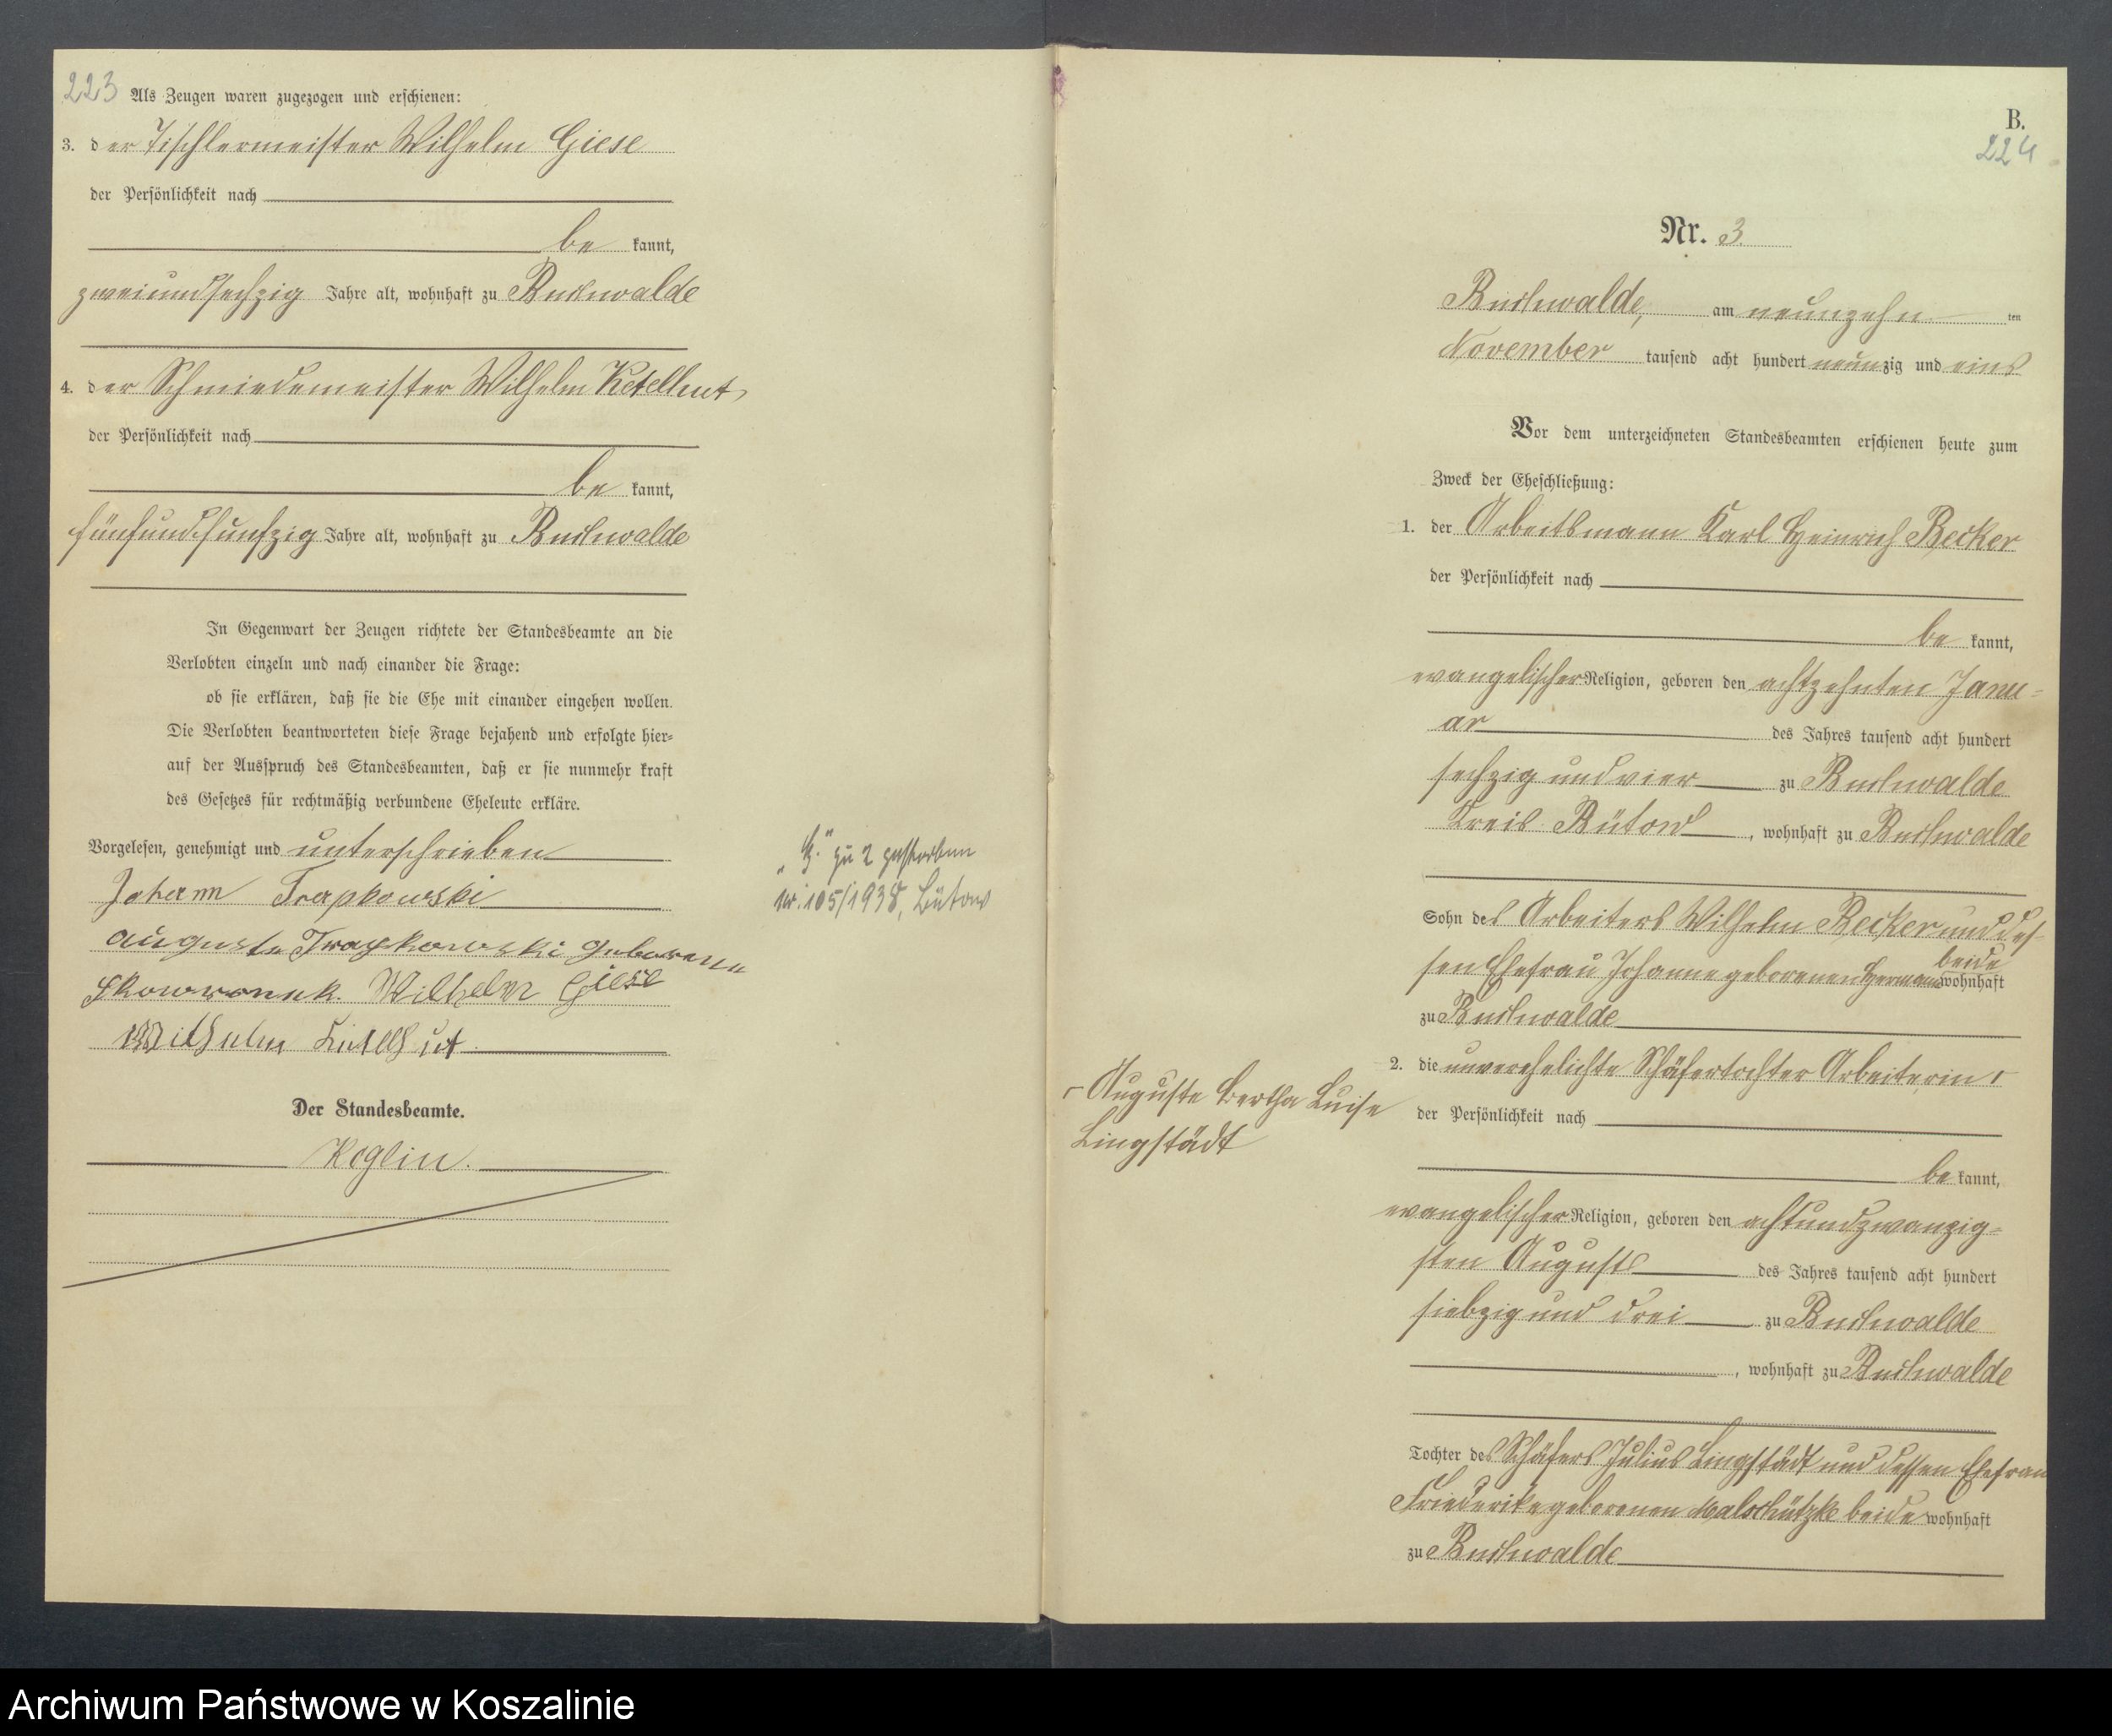 223 Als Zeugen waren zugezogen und erschienen:
3. der Tischlermeister Wilhelm Giese
der Persönlichkeit nach
be kannt,
zweiundsechzig Jahre alt, wohnhaft zu Buchwalde
4. der Schmiedemeister Wilhelm Ketelhut,
der Persönlichkeit nach
be kannt,
fünfundfunfzig Jahre alt, wohnhaft zu Buchwalde
In Gegenwart der Zeugen richtete der Standesbeamte an die
Verlobten einzeln und nach einander die Frage:
ob sie erklären, daß sie die Ehe mit einander eingehen wollen.
Die Verlobten beantworteten diese Frage bejahend und erfolgte hier-
auf der Ausspruch des Standesbeamten, daß er sie nunmehr kraft
des Gesetzes für rechtmäßig verbundene Eheleute erkläre.
Vorgelesen, genehmigt und unterschrieben
Johann Trapkowski
Auguste Trapkowski geborene
Skowronek. Wilhelm Giese
Wilhelm Ketelhut.
Der Standesbeamte.
Koglin.
„H." zu 2 gestorben
Nr. 105/1938, Bütow
B.
224
Nr. 3.
Buchwalde, am neunzehn ten
November tausend acht hundert neunzig und eins
Vor dem unterzeichneten Standesbeamten erschienen heute zum
Zweck der Eheschließung:
1. der Arbeitsmann Karl Heinrich Becker
der Persönlichkeit nach
be kannt,
evangelischer Religion, geboren den achtzehnten Janu-
ar des Jahres tausend acht hundert
sechzig und vier zu Buchwalde
Kreis Bütow, wohnhaft zu Buchwalde
Sohn des Arbeiters Wilhelm Becker und des-
sen Ehefrau Johanne geborenen Hermann beide wohnhaft
zu Buchwalde
2. die unverehelichte Schäfertochter Arbeiterin ⌈
⌈ Auguste Bertha Luise
Lingstädt
der Persönlichkeit nach
be kannt,
evangelischer Religion, geboren den achtundzwanzig-
sten August des Jahres tausend acht hundert
siebzig und drei zu Buchwalde
, wohnhaft zu Buchwalde
Tochter des Schäfers Julius Lingstädt und dessen Ehefrau
Friederike geborenen Malschützke beide wohnhaft
zu Buchwalde
Archiwum Państwowe w Koszalinie